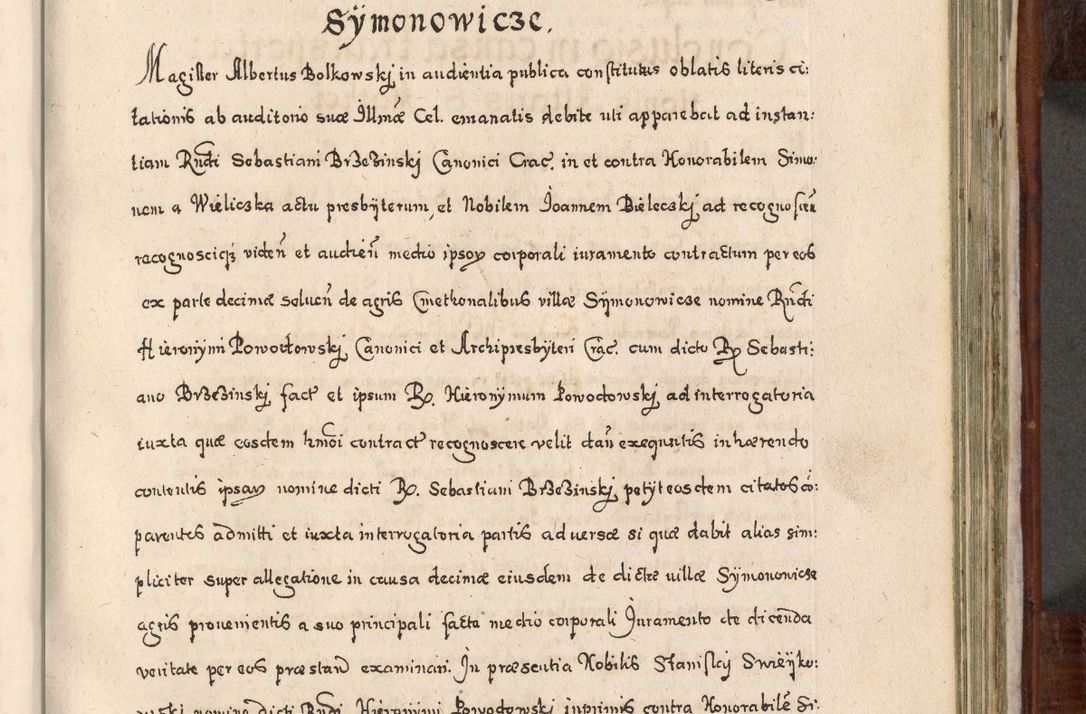 Sÿmonowicze.
Magister Albertus Bolkowskj in audientia publica constitutus oblatis literis ci:
tationis ab auditorio suæ Illmæ Cel. emanatis debite uti apparebat ad instan:
tiam Rndi Sebastiani Brzezinskj Canonici Crac. in et contra Honorabilem Simo:
nem a Wieliczka actu presbÿterum, et Nobilem Joannem Bieleckj ad recognoscen
recognosciqz viden et audien medio ipsoꝝ corporali iuramento contractum per eos
ex parte decimæ soluen de agris Cmethonalibus villæ Sÿmonowicze nomine Rndi
Hieronÿmi Powodowskj Canonici et Archipresbÿteri Crac. cum dicto R. Sebasti:
ano Brzezinskj fact et ipsum R. Hieronÿmum Powodowskj ad interrogatoria
iuxta quæ eosdem hmoi contract recognoscere velit dan exequutis inhærendo
contentis ipsaꝝ nomine dicti R. Sebastiani Brzezinskj petÿt eosdem citatos cō:
parentes admitti et iuxta interrogatoria partis adversæ si quæ dabit alias sim:
pliciter super allegatione in causa decimæ eiusdem de dictæ villæ Sÿmonowicze
agris provenientis a suo principali facta medio corporali Juramento de dicenda
veritate per eos præstand examinari. In præsentia Nobilis Stanislaj Swieÿko:
wskj nomine dicti Rndi Hieronÿmi Powodowskj inprimis contra Honorabilē Si: